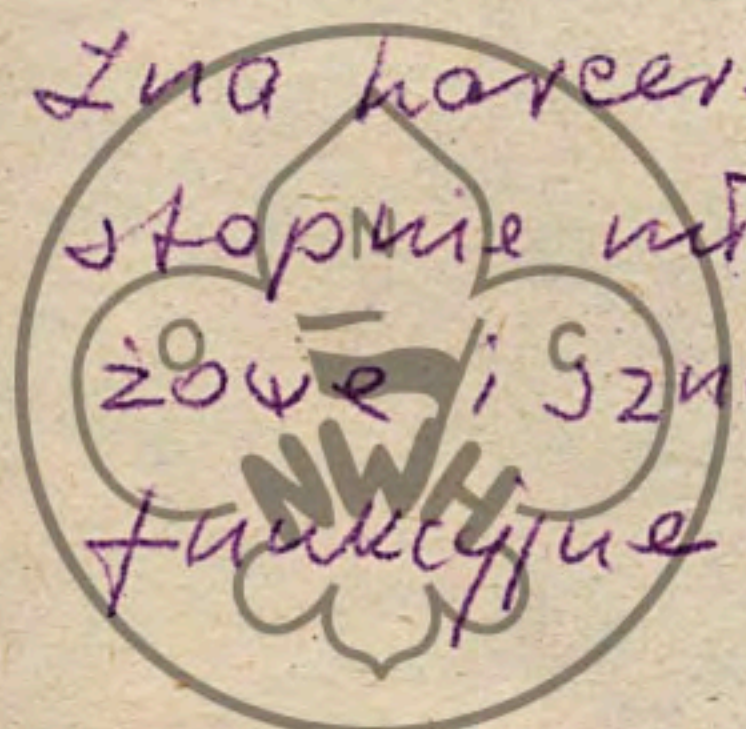 Zna harcer
stopnie mł
żowe i szn
funkcyjne
O N C
NWH